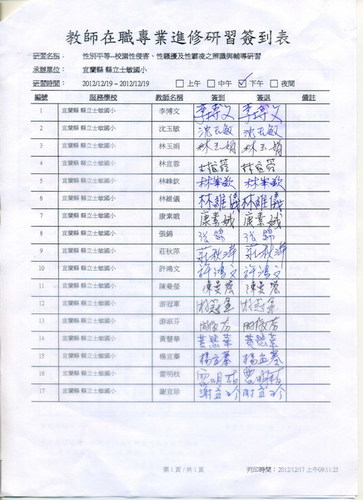 教師在職專業進修研習簽到表
研習名稱： 性別平等--校園性侵害、性騷擾及性霸凌之辨識與輔導研習
承辦單位： 宜蘭縣 縣立士敏國小
研習時間： 2012/12/19 ~ 2012/12/19 □上午 □中午 ☑下午 □夜間
編號 服務學校 教師名稱 簽到 簽退 備註
1 宜蘭縣 縣立士敏國小 李博文 李博文 李博文
2 宜蘭縣 縣立士敏國小 沈玉敏 沈玉敏 沈玉敏
3 宜蘭縣 縣立士敏國小 林玉娟 林玉娟 林玉娟
4 宜蘭縣 縣立士敏國小 林宜蓉 林宜蓉 林宜蓉
5 宜蘭縣 縣立士敏國小 林峰欽 林峰欽 林峰欽
6 宜蘭縣 縣立士敏國小 林維儀 林維儀 林維儀
7 宜蘭縣 縣立士敏國小 康素娥 康素娥 康素娥
8 宜蘭縣 縣立士敏國小 張錦 張錦 張錦
9 宜蘭縣 縣立士敏國小 莊秋萍 莊秋萍 莊秋萍
10 宜蘭縣 縣立士敏國小 許鴻文 許鴻文 許鴻文
11 宜蘭縣 縣立士敏國小
12 宜蘭縣 縣立士敏國小 游冠軍
13 宜蘭縣 縣立士敏國小 游淑芬
14 宜蘭縣 縣立士敏國小 黃慧華
15 宜蘭縣 縣立士敏國小 楊宜蓁
16 宜蘭縣 縣立士敏國小 雷明枝
17 宜蘭縣 縣立士敏國小 謝宜珍
第 1 頁 / 共 1 頁 列印時間：2012/12/17 上午 09:11:25